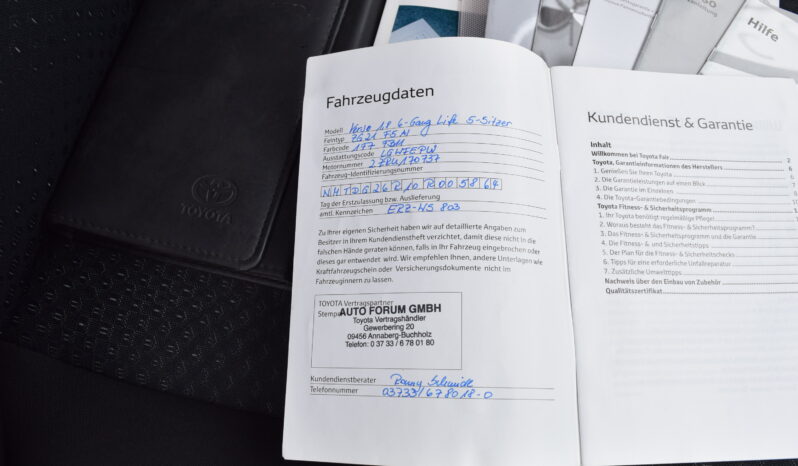 TOYOTA
Hilfe
Fahrzeugdaten
Modell Verso 1.8 6-Gang Life 5-Sitzer
Feintyp ZG21 F5 N
Farbcode 1F7 FB11
Ausstattungscode LGWEEPW
Motornummer 2ZRU170737
Fahrzeug-Identifizierungsnummer
NMTDG26R10R005864
Tag der Erstzulassung bzw. Auslieferung
amtl. Kennzeichen ERZ-HS 803
Zu Ihrer eigenen Sicherheit haben wir auf detaillierte Angaben zum
Besitzer in Ihrem Kundendienstheft verzichtet, damit diese nicht in die
falschen Hände geraten können, falls in Ihr Fahrzeug eingebrochen oder
dieses gar entwendet wird. Wir empfehlen Ihnen, andere Unterlagen wie
Kraftfahrzeugschein oder Versicherungsdokumente nicht im
Fahrzeuginnern zu lassen.
TOYOTA Vertragspartner
AUTO FORUM GMBH
Toyota Vertragshändler
Gewerbering 20
09456 Annaberg-Buchholz
Telefon: 0 37 33 / 6 78 01 80
Kundendienstberater Ronny Schmidt
Telefonnummer 03733/678018-0
Kundendienst & Garantie
Inhalt
Willkommen bei Toyota Fair 2
Toyota, Garantieinformationen des Herstellers
1. Genießen Sie Ihren Toyota
2. Die Garantieleistungen auf einen Blick
3. Die Garantie im Einzelnen
4. Die Toyota-Garantiebedingungen
Toyota Fitness- & Sicherheitsprogramm
1. Ihr Toyota benötigt regelmäßige Pflege!
2. Woraus besteht das Fitness- & Sicherheitsprogramm?
3. Das Fitness- & Sicherheitsprogramm und die Garantie
4. Die Fitness- und Sicherheitstipps
5. Der Plan für die Fitness- & Sicherheitschecks
6. Tipps für eine erforderliche Unfallreparatur
7. Zusätzliche Umwelttipps
Nachweis über den Einbau von Zubehör
Qualitätszertifikat